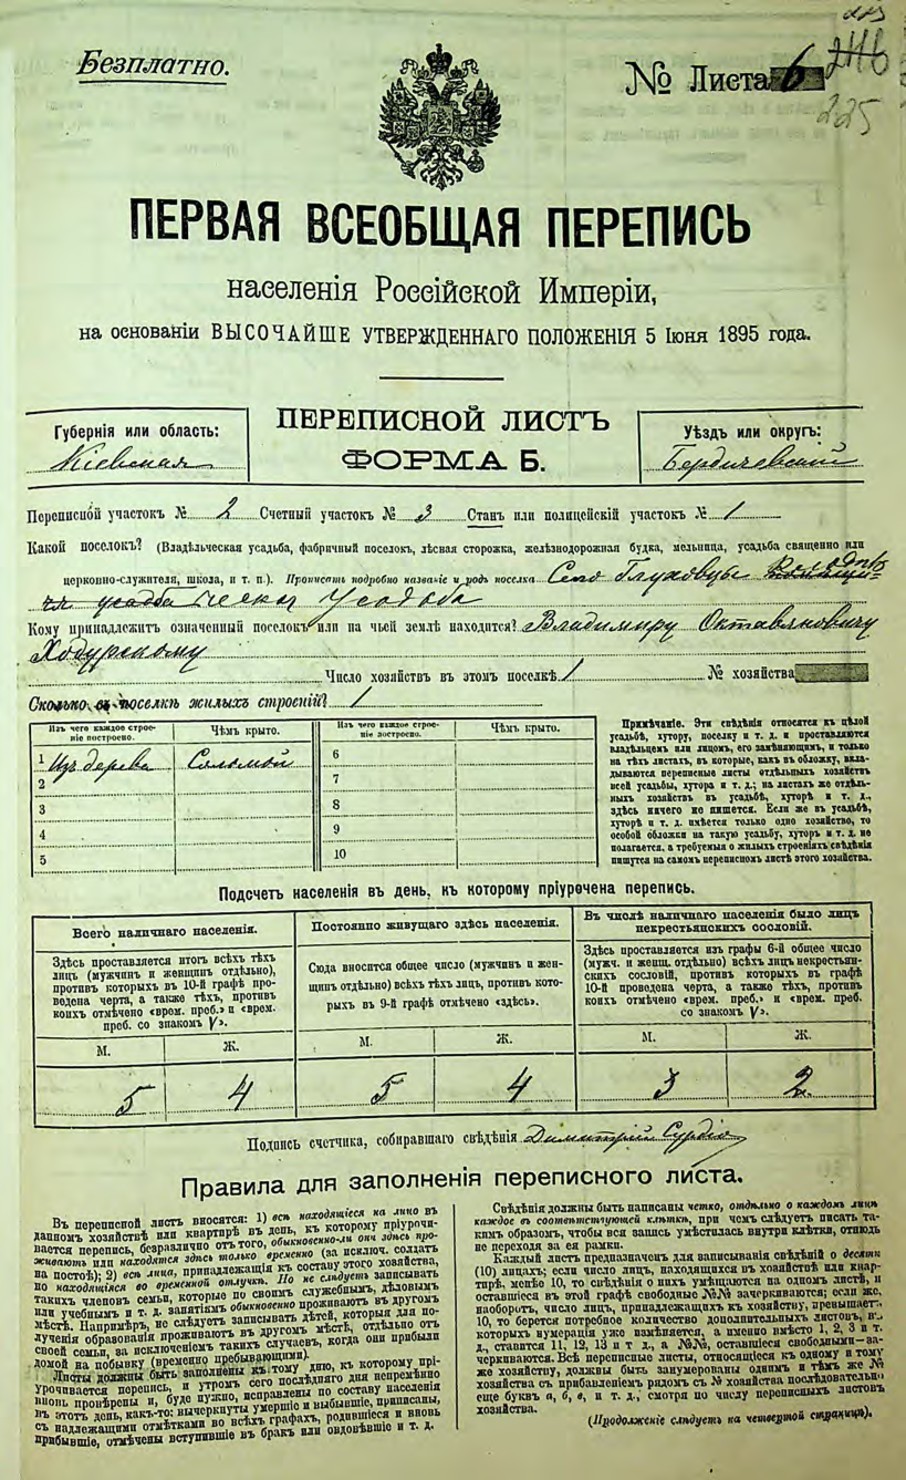 Безплатно.
№ Листа 6
225
ПЕРВАЯ ВСЕОБЩАЯ ПЕРЕПИСЬ
населенія Россійской Имперіи,
на основаніи ВЫСОЧАЙШЕ УТВЕРЖДЕННАГО ПОЛОЖЕНІЯ 5 Іюня 1895 года.
Губернія или область:
Кіевская
ПЕРЕПИСНОЙ ЛИСТЪ
ФОРМА Б.
Уѣздъ или округъ:
Бердичевскій
Переписной участокъ № 2 Счетный участокъ № 3 Станъ или полицейскій участокъ № 1
Какой поселокъ? (Владѣльческая усадьба, фабричный поселокъ, лѣсная сторожка, желѣзнодорожная будка, мельница, усадьба священно или
церковно-служителя, школа, и т. п.). Прописать подробно названіе и родъ поселка Село Глуховцы
усадьба Усадьба
Кому принадлежитъ означенный поселокъ или на чьей землѣ находится? Владимиру Октавяновичу
Ходурскому
Число хозяйствъ въ этомъ поселкѣ 1 № хозяйства
Сколько въ поселкѣ жилыхъ строеній? 1
Изъ чего каждое строеніе построено. Чѣмъ крыто. Изъ чего каждое строеніе построено. Чѣмъ крыто.
1 Изъ дерева Соломой 6
2 7
3 8
4 9
5 10
Примѣчаніе. Эти свѣдѣнія относятся къ цѣлой
усадьбѣ, хутору, поселку и т. д. и проставляются
владѣльцемъ или лицомъ, его замѣняющимъ, и только
на тѣхъ листахъ, въ которые, какъ въ обложку, вкла-
дываются переписные листы отдѣльныхъ хозяйствъ
всей усадьбы, хутора и т. д.; на листахъ же отдѣль-
ныхъ хозяйствъ въ усадьбѣ, хуторѣ и т. д.,
здѣсь ничего не пишется. Если же въ усадьбѣ,
хуторѣ и т. д. имѣется только одно хозяйство, то
особой обложки на такую усадьбу, хуторъ и т. д. не
полагается, а требуемыя о жилыхъ строеніяхъ свѣдѣнія
пишутся на самомъ переписномъ листѣ этого хозяйства.
Подсчетъ населенія въ день, къ которому пріурочена перепись.
Всего наличнаго населенія.
Здѣсь проставляется итогъ всѣхъ тѣхъ
лицъ (мужчинъ и женщинъ отдѣльно),
противъ которыхъ въ 10-й графѣ про-
ведена черта, а также тѣхъ, противъ
коихъ отмѣчено «врем. преб.» и «врем.
преб. со знакомъ V».
М. Ж.
5 4
Постоянно живущаго здѣсь населенія.
Сюда вносится общее число (мужчинъ и жен-
щинъ отдѣльно) всѣхъ тѣхъ лицъ, противъ кото-
рыхъ въ 9-й графѣ отмѣчено «здѣсь».
М. Ж.
5 4
Въ числѣ наличнаго населенія было лицъ
некрестьянскихъ сословій.
Здѣсь проставляется изъ графы 6-й общее число
(мужч. и женщ. отдѣльно) всѣхъ лицъ некрестьян-
скихъ сословій, противъ которыхъ въ графѣ
10-й проведена черта, а также тѣхъ, противъ
коихъ отмѣчено «врем. преб.» и «врем. преб.
со знакомъ V».
М. Ж.
3 2
Подпись счетчика, собиравшаго свѣдѣнія Димитрій
Правила для заполненія переписного листа.
Въ переписной листъ вносятся: 1) всѣ находящіеся на лицо въ
данномъ хозяйствѣ или квартирѣ въ день, къ которому пріурочи-
вается перепись, безразлично отъ того, обыкновенно-ли они здѣсь про-
живаютъ или находятся здѣсь только временно (за исключ. солдатъ
на постоѣ); 2) всѣ лица, принадлежащія къ составу этого хозяйства,
но находящіяся во временной отлучкѣ. Но не слѣдуетъ записывать
такихъ членовъ семьи, которые по своимъ служебнымъ, дѣловымъ
или учебнымъ и т. д. занятіямъ обыкновенно проживаютъ въ другомъ
мѣстѣ. Напримѣръ, не слѣдуетъ записывать дѣтей, которыя для по-
лученія образованія проживаютъ въ другомъ мѣстѣ, отдѣльно отъ
своей семьи, за исключеніемъ такихъ случаевъ, когда они прибыли
домой на побывку (временно пребывающими).
Листы должны быть заполнены къ тому дню, къ которому прі-
урочивается перепись, и утромъ сего послѣдняго дня непремѣнно
вновь провѣрены и, буде нужно, исправлены по составу населенія
въ этотъ день, какъ-то: вычеркнуты умершіе и выбывшіе, приписаны,
съ надлежащими отмѣтками во всѣхъ графахъ, родившіеся и вновь
прибывшіе, отмѣчены вступившіе въ бракъ или овдовѣвшіе и т. д.
Свѣдѣнія должны быть написаны четко, отдѣльно о каждомъ лицѣ
каждое въ соотвѣтствующей клѣткѣ, при чемъ слѣдуетъ писать та-
кимъ образомъ, чтобы вся запись умѣстилась внутри клѣтки, отнюдь
не переходя за ея рамки.
Каждый листъ предназначенъ для записыванія свѣдѣній о десяти
(10) лицахъ; если число лицъ, находящихся въ хозяйствѣ или квар-
тирѣ, менѣе 10, то свѣдѣнія о нихъ умѣщаются на одномъ листѣ, и
оставшіеся въ этой графѣ свободные №№ зачеркиваются; если же,
наоборотъ, число лицъ, принадлежащихъ къ хозяйству, превышаетъ
10, то берется потребное количество дополнительныхъ листовъ, въ
которыхъ нумерація уже измѣняется, а именно вмѣсто 1, 2, 3 и т.
д., ставится 11, 12, 13 и т д., а №№, оставшіеся свободными—за-
черкиваются. Всѣ переписные листы, относящіеся къ одному и тому
же хозяйству, должны быть занумерованы однимъ и тѣмъ же №
хозяйства съ прибавленіемъ рядомъ съ № хозяйства послѣдовательно
еще буквъ а, б, в, и т. д., смотря по числу переписныхъ листовъ
хозяйства.
(Продолженіе слѣдуетъ на четвертой страницѣ).